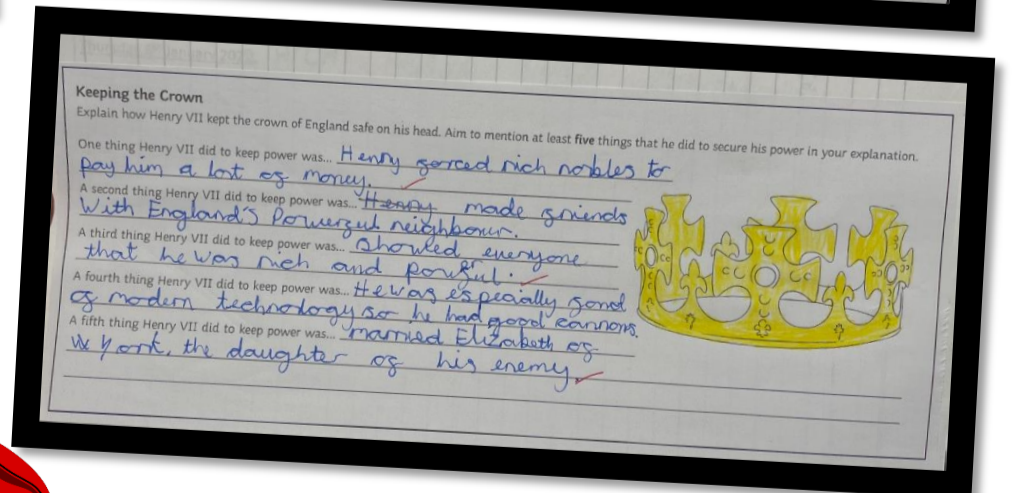 Keeping the Crown
Explain how Henry VII kept the crown of England safe on his head. Aim to mention at least five things that he did to secure his power in your explanation.
One thing Henry VII did to keep power was... Henry forced rich nobles to
pay him a lost of money.
A second thing Henry VII did to keep power was... Henry made friends
With England's Powerful neighbour.
A third thing Henry VII did to keep power was... Showed everyone
that he was rich and powerful.
A fourth thing Henry VII did to keep power was... He was especially fond
of modern technology so he had good cannons.
A fifth thing Henry VII did to keep power was... married Elizabeth of
York, the daughter of his enemy.